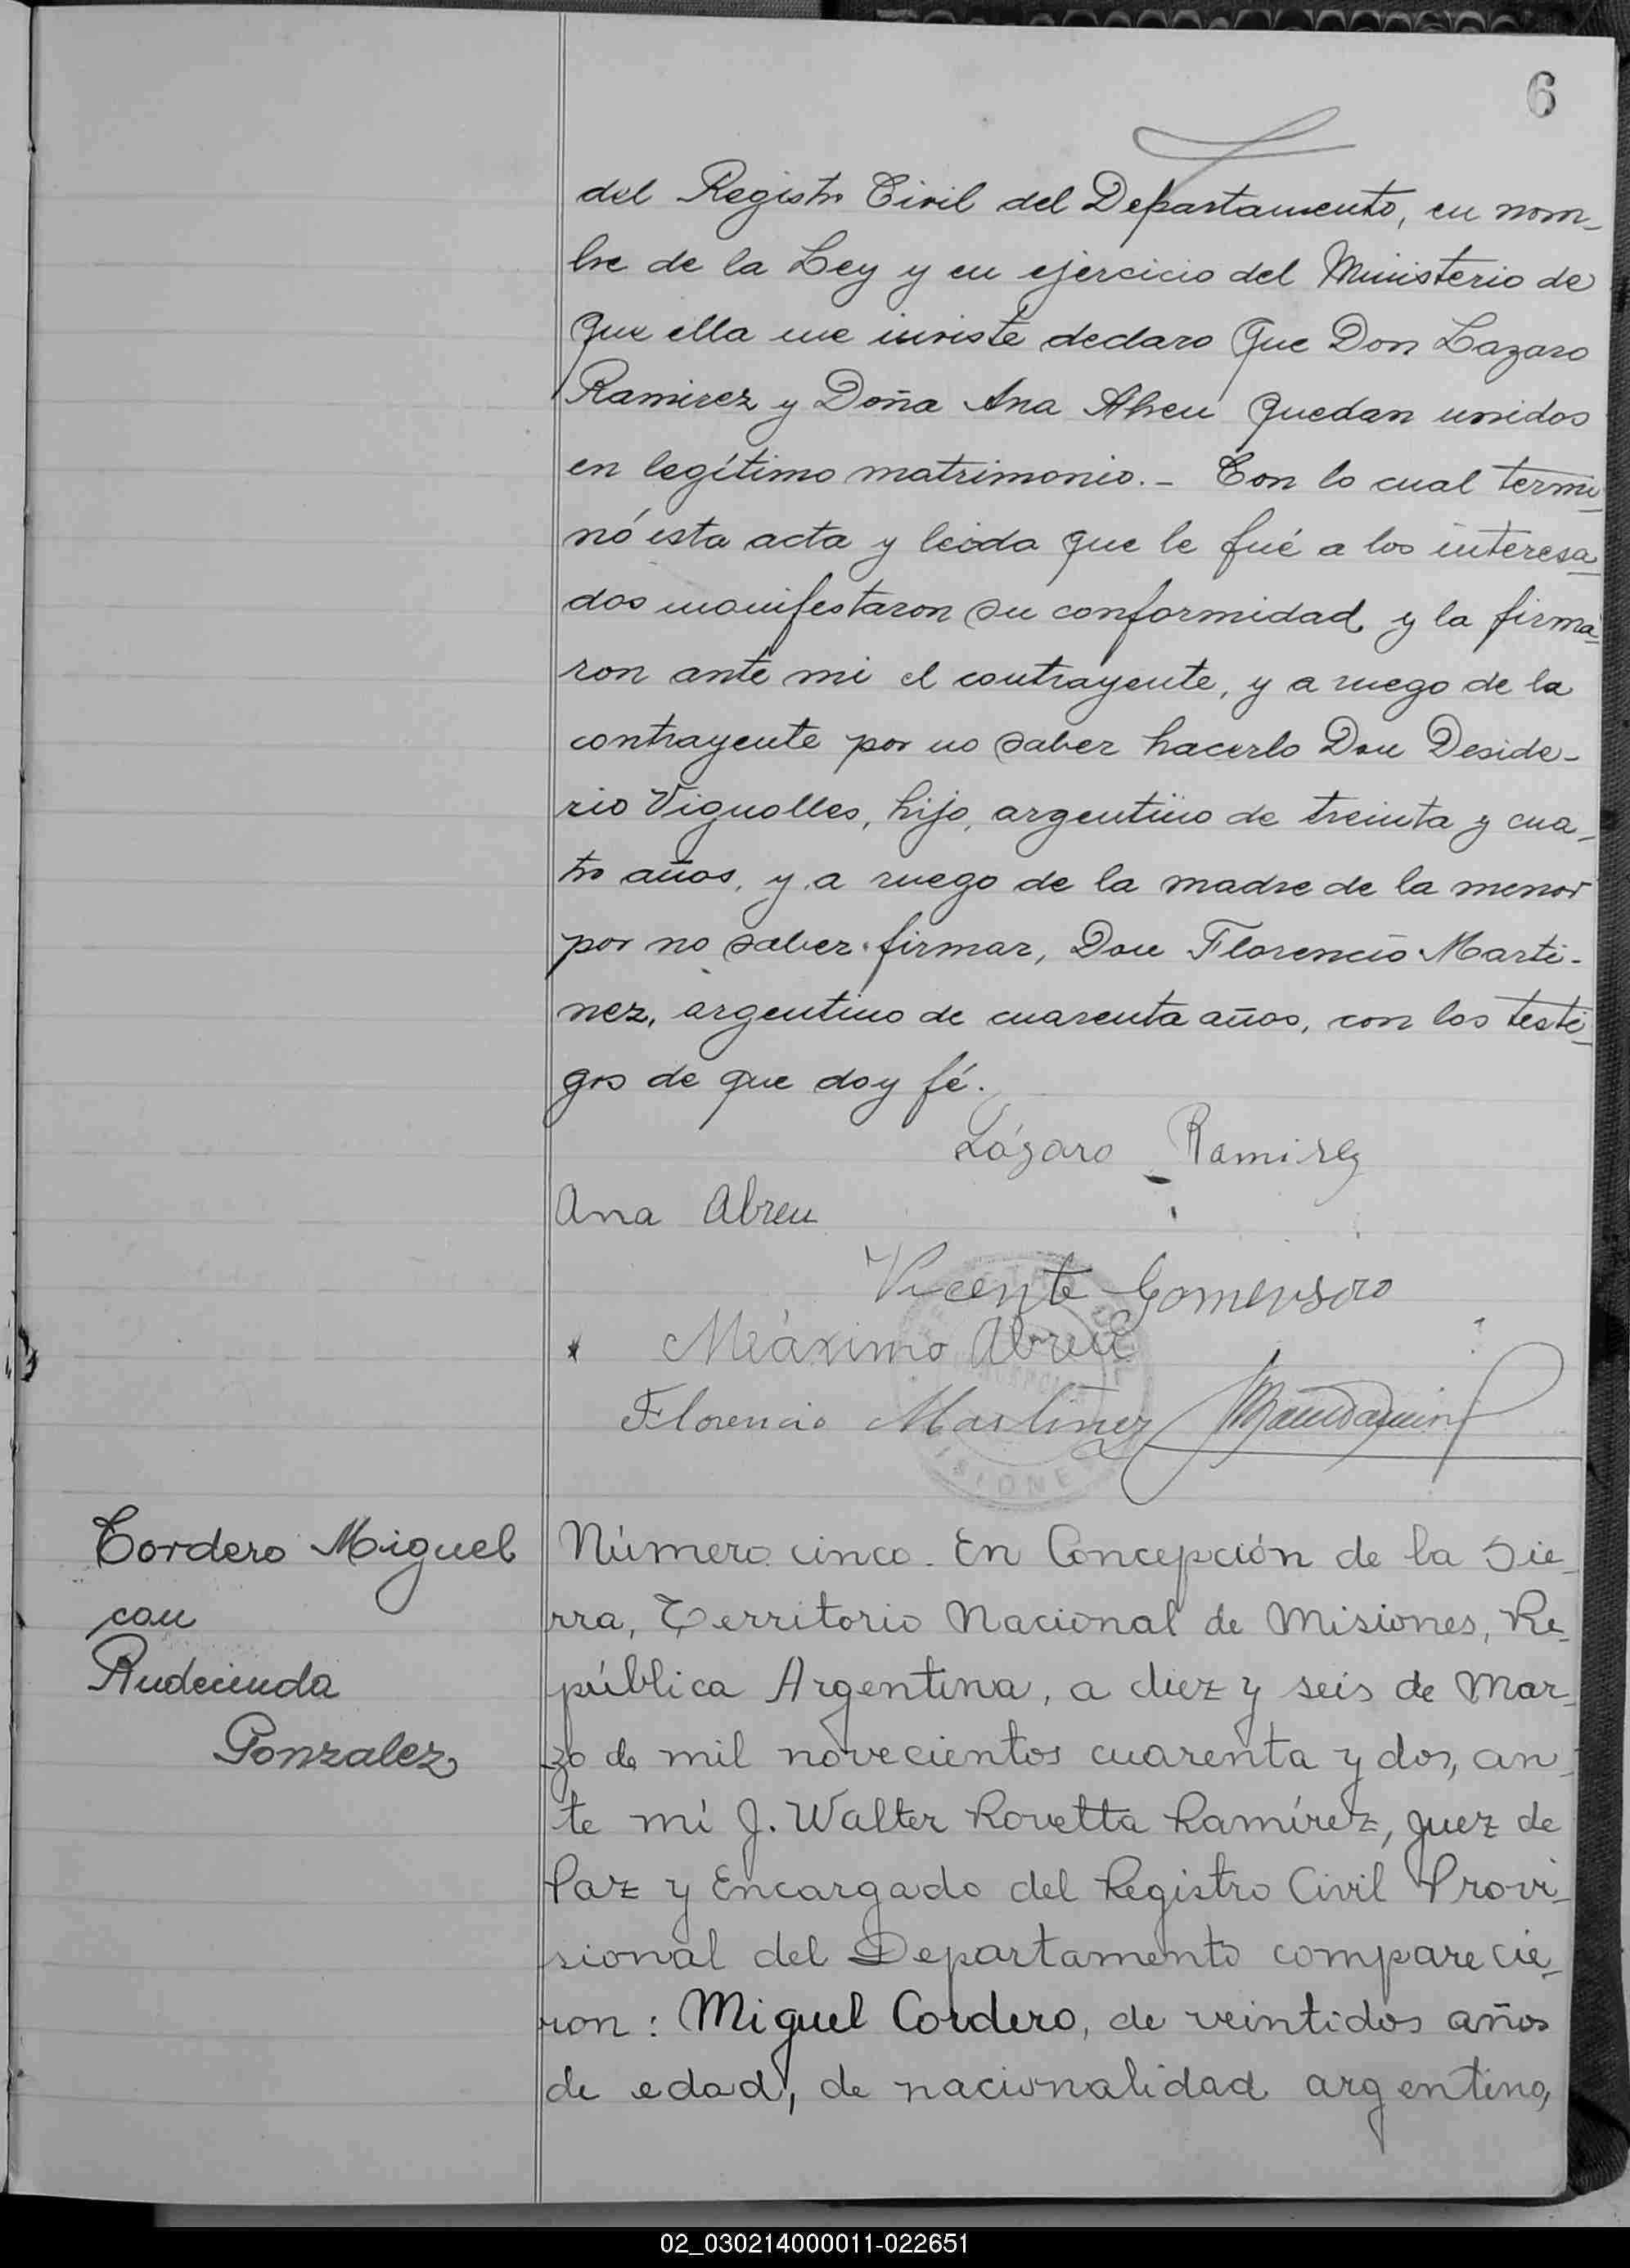 6
del Registro Civil del Departamento, en nom-
bre de la Ley y en ejercicio del Ministerio de
que ella me inviste declaro que Don Lazaro
Ramirez y Doña Ana Abreu quedan unidos
en legítimo matrimonio.- Con lo cual termi-
nó esta acta y leida que le fué a los interesa-
dos manifestaron su conformidad y la firma-
ron ante mi el contrayente, y a ruego de la
contrayente por no saber hacerlo Don Deside-
rio Vignolles, hijo, argentino de treinta y cua-
tro años, y a ruego de la madre de la menor
por no saber firmar, Don Florencio Marti-
nez, argentino de cuarenta años, con los testi-
gos de que doy fé.
Lázaro Ramirez
Ana Abreu
Vicente Gomensoro
Máximo Abreu
Florencio Martinez
MISIONES
Cordero Miguel
con
Rudecinda
Gonzalez
Número cinco. En Concepción de la Sie-
rra, Territorio Nacional de Misiones, Re-
pública Argentina, a diez y seis de Mar-
zo de mil novecientos cuarenta y dos, an-
te mí J. Walter Rovetta Ramírez, Juez de
Paz y Encargado del Registro Civil Provi-
sional del Departamento comparecie-
ron: Miguel Cordero, de veintidos años
de edad, de nacionalidad argentino,
02_030214000011-022651